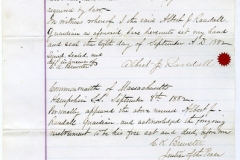 required by law
In witness whereof I the said Albert J. Randall
Guardian as aforesaid, have hereunto set my hand
and seal this eighth day of September A.D. 1882
Signed Sealed and
in presence of
E. K. Brewster
Albert J. Randall
Commonwealth of Massachusetts
Hampshire S.S. September 8th 1882
Personally appeared the above named Albert J.
Randall Guardian and acknowledged the foregoing
instrument to be his free act and deed before me
E. K. Brewster
Justice of the Peace